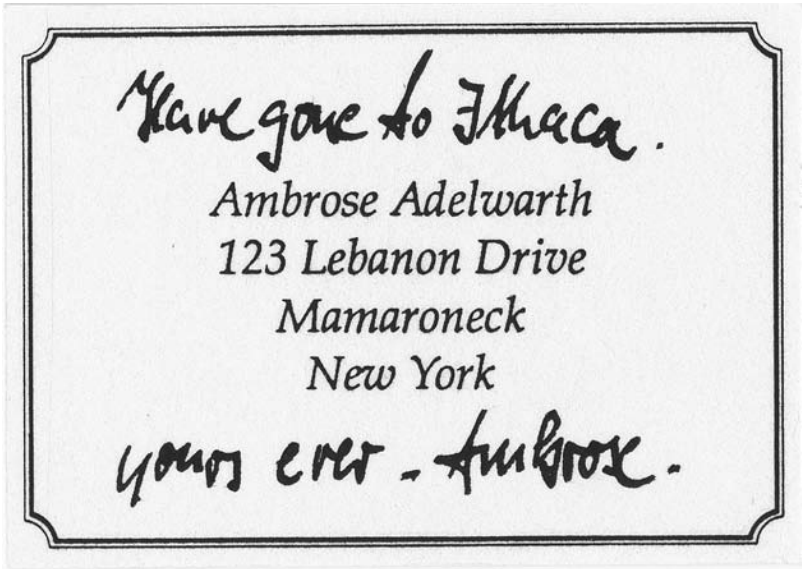 Have gone to Ithaca.
Ambrose Adelwarth
123 Lebanon Drive
Mamaroneck
New York
yours ever - Ambrose.